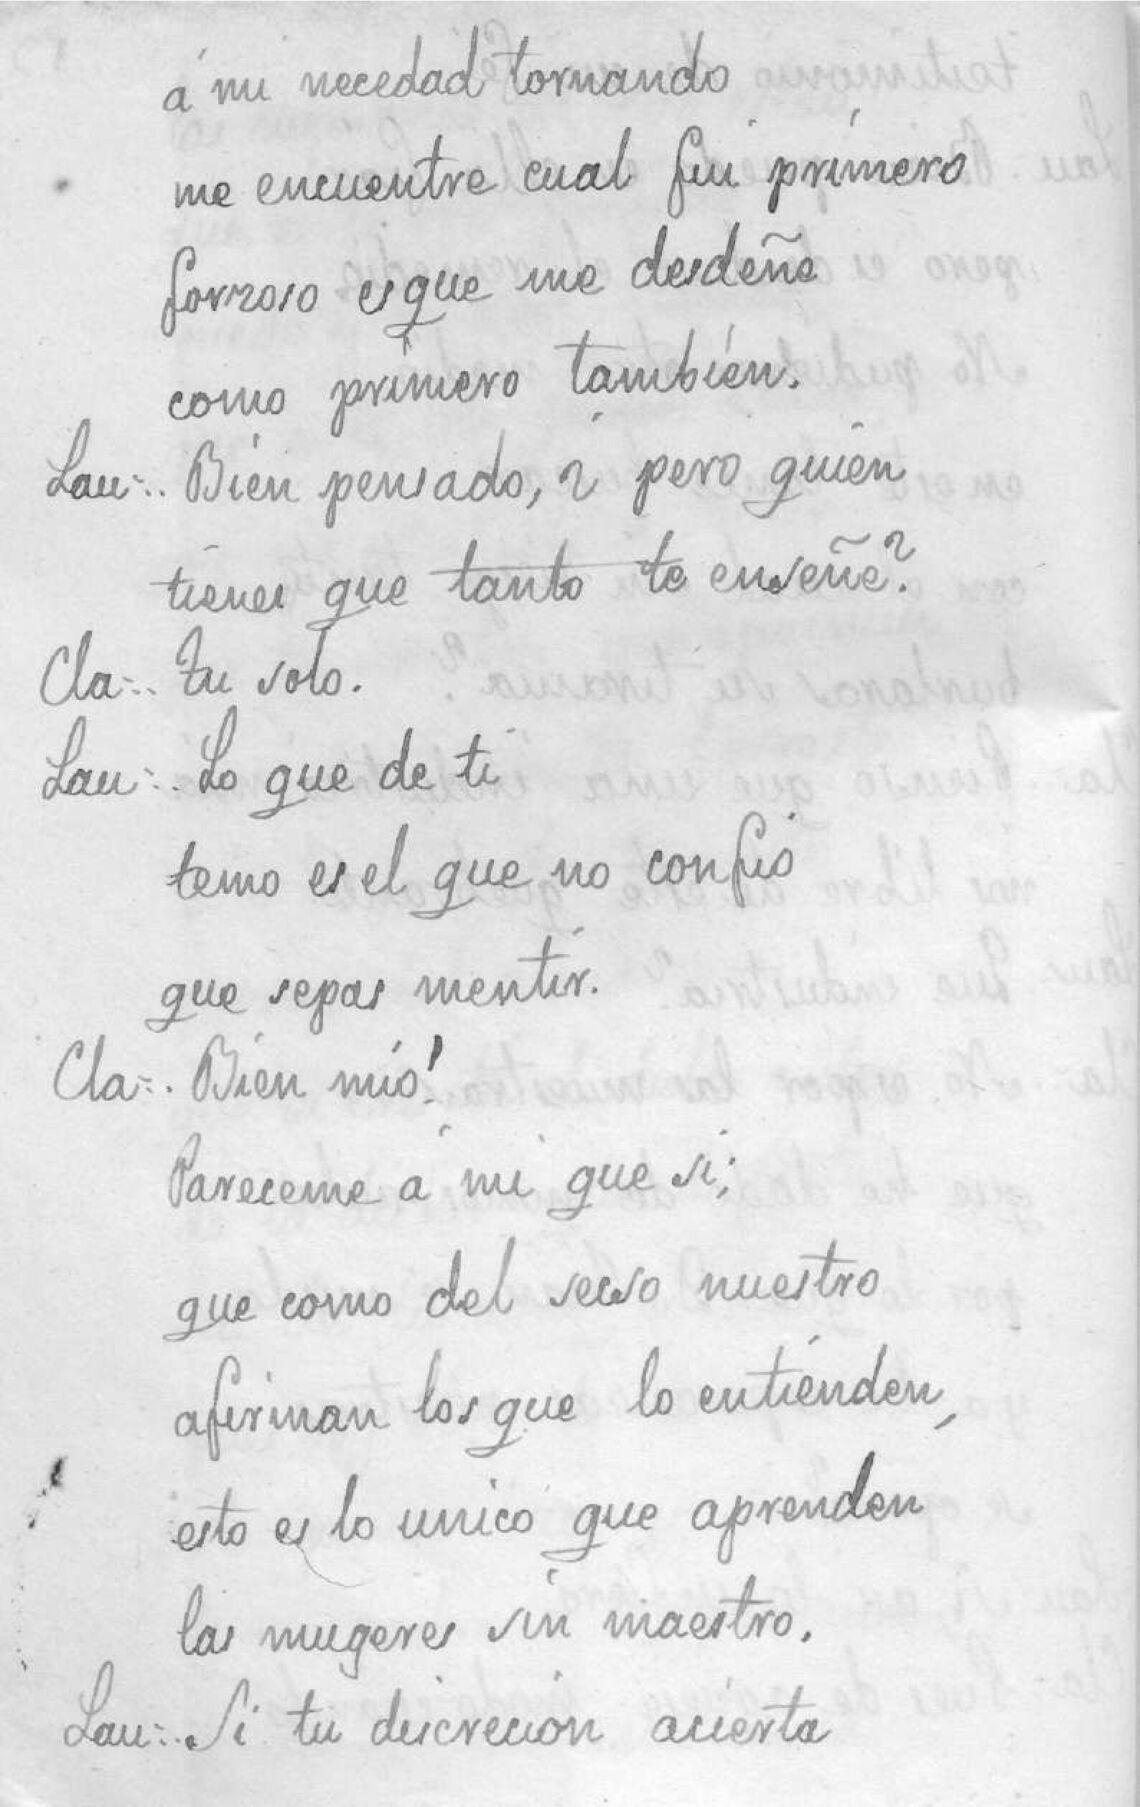 á mi necedad tornando
me encuentre cual fui primero
forzoso es que me desdeñe
como primero tambien.
Lau=.. Bien pensado, ¿ pero quien
tienes que tanto te enseñe?
Cla=.. Tu solo.
Lau=.. Lo que de ti
temo es el que no confio
que sepas mentir.
Cla=.. Bien mio!
Pareceme á mi que si;
que como del secso nuestro
afirman los que lo entienden,
esto es lo unico que aprenden
las mugeres sin maestro.
Lau=.. Si tu discrecion acierta